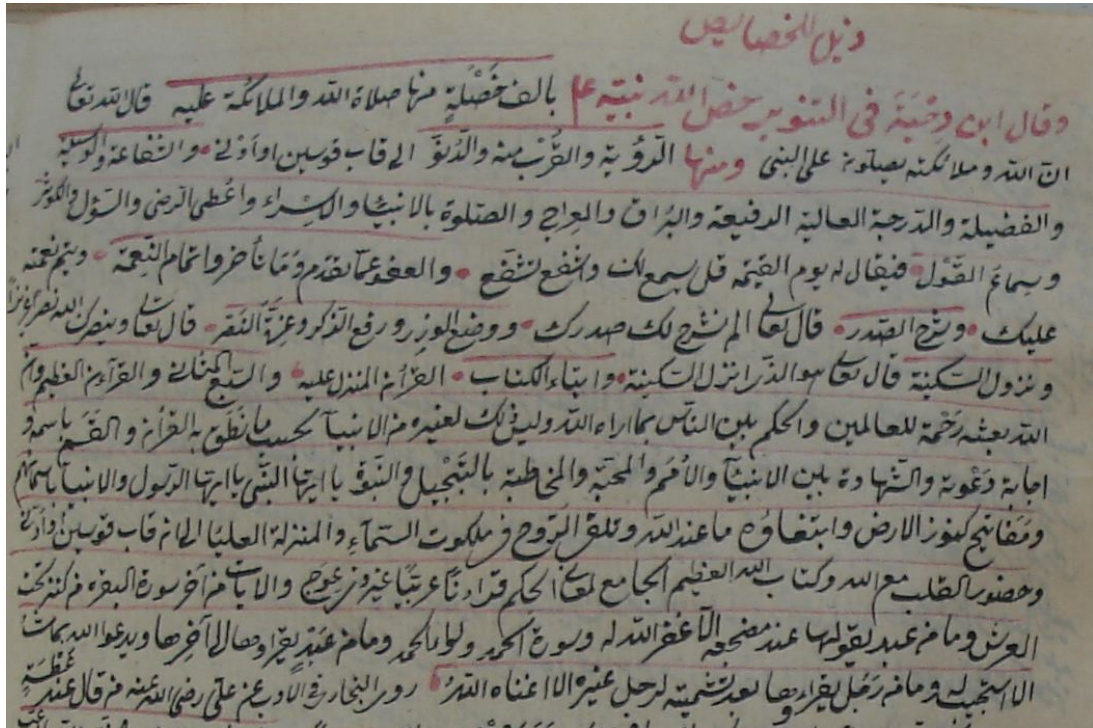 ذيل للخصايص
وقال ابن دِحْيَةَ في التنوير خصّ الله نبيّه عم بالف خَصْلَةٍ منها صلاة الله والملائكة عليه قال الله تعالى
انّ الله وملائكته يصلّون على النبى ومنها الرؤية والقُرْب منه والدّنوّ الى قاب قوسين او ادنى والشفاعة والوسيلة
والفضيلة والدّرجة العالية الرفيعة والبُراق والمعراج والصّلوة بالانبيّا والاسراء واعطى الرضى والسؤل والكوثر
وسماع القَوْل فيقال له يوم القيمة قل يسمع لك واشفع تشفّع والعفو عمّا تقدم وما تأخر واتمام النّعمة ويتم نعمته
عليك وشرح الصّدر قال تعالى الم نشرح لك صدرك ووضع الوزر ورفع الذّكر وعزّة النّصر قال تعالى وينصرك الله نصرا عزيزا
ونزول السّكينة قال تعالى هو الذى انزل السّكينة وايتاء الكتاب القرأن المنزل عليه والسّبع المثانى والقرآن العظيم وان
الله بعثه رَحْمة للعالمين والحكم بين الناس بما اراه الله وليس ذلك لغيره من الانبيآ بحسب ما نَطَق به القرأن والقَسَم باسمه و
اجابة دَعْوته والشّهادة بين الانبيّآ والاُمَم والمحبّة والمخاطبة بالتَّبْجيل يا ايها النّبى يا ايها الرّسول والانبيآ باسمائهم
ومَفاتيح كنوز الارض وابتغاؤه ما عند الله وتلقى الرّوح فى ملكوت السّمآء والمنزلة العليا الى ان قاب قوسين او ادنى
وحضور القلب مع الله وكتاب الله العظيم الجامع لمعانى الحكم قراٰنًا عربيًّا غير ذى عِوَج والايات من آخر سورة البقره من كنز تحت
العرش وما من عبد يقولها عند مضجعه الّا غفر الله له وسورة الحمد ولواء الحمد وما من عَبْدٍ يقراوها الى آخرها ويدعوا الله بما شآ
الا استجيب له وما من رَجُل يقراوها بعد تسمية لرجل غيره الا اغناه الله روى النجار فى الادب عن على رضى الله عنه من قال عند عَطْسَةٍ